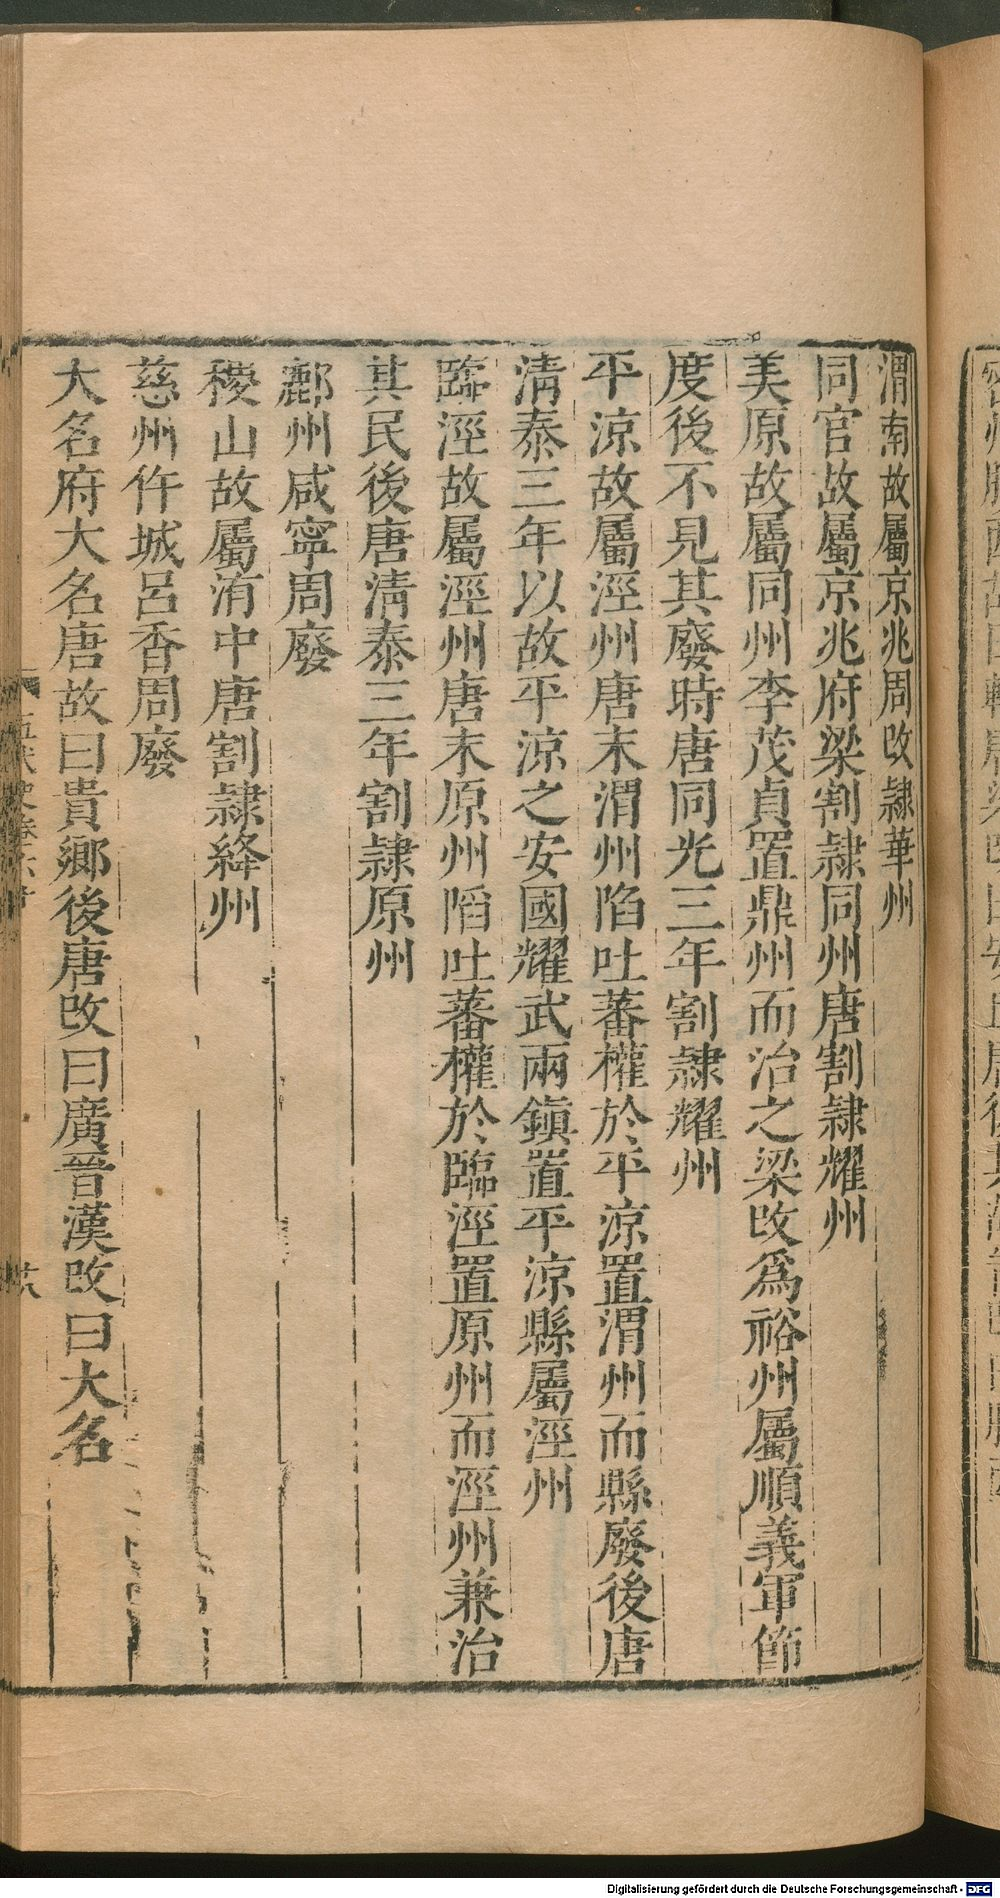 渭南故屬京兆周改隸華州
同官故屬京兆府梁割隸同州唐割隸耀州
美原故屬同州李茂貞置鼎州而治之梁改爲裕州屬順義軍節
度後不見其廢時唐同光三年割隸耀州
平涼故屬涇州唐末渭州陷吐蕃權於平涼置渭州而縣廢後唐
清泰三年以故平涼之安國耀武兩鎮置平涼縣屬涇州
臨涇故屬涇州唐末原州陷吐蕃權於臨涇置原州而涇州兼治
其民後唐清泰三年割隸原州
鄜州咸寧周廢
稷山故屬河中唐割隸絳州
慈州仵城呂香周廢
大名府大名唐故曰貴鄉後唐改曰廣晉漢改曰大名
五代史卷六十
廿八
Digitalisierung gefördert durch die Deutsche Forschungsgemeinschaft - DFG